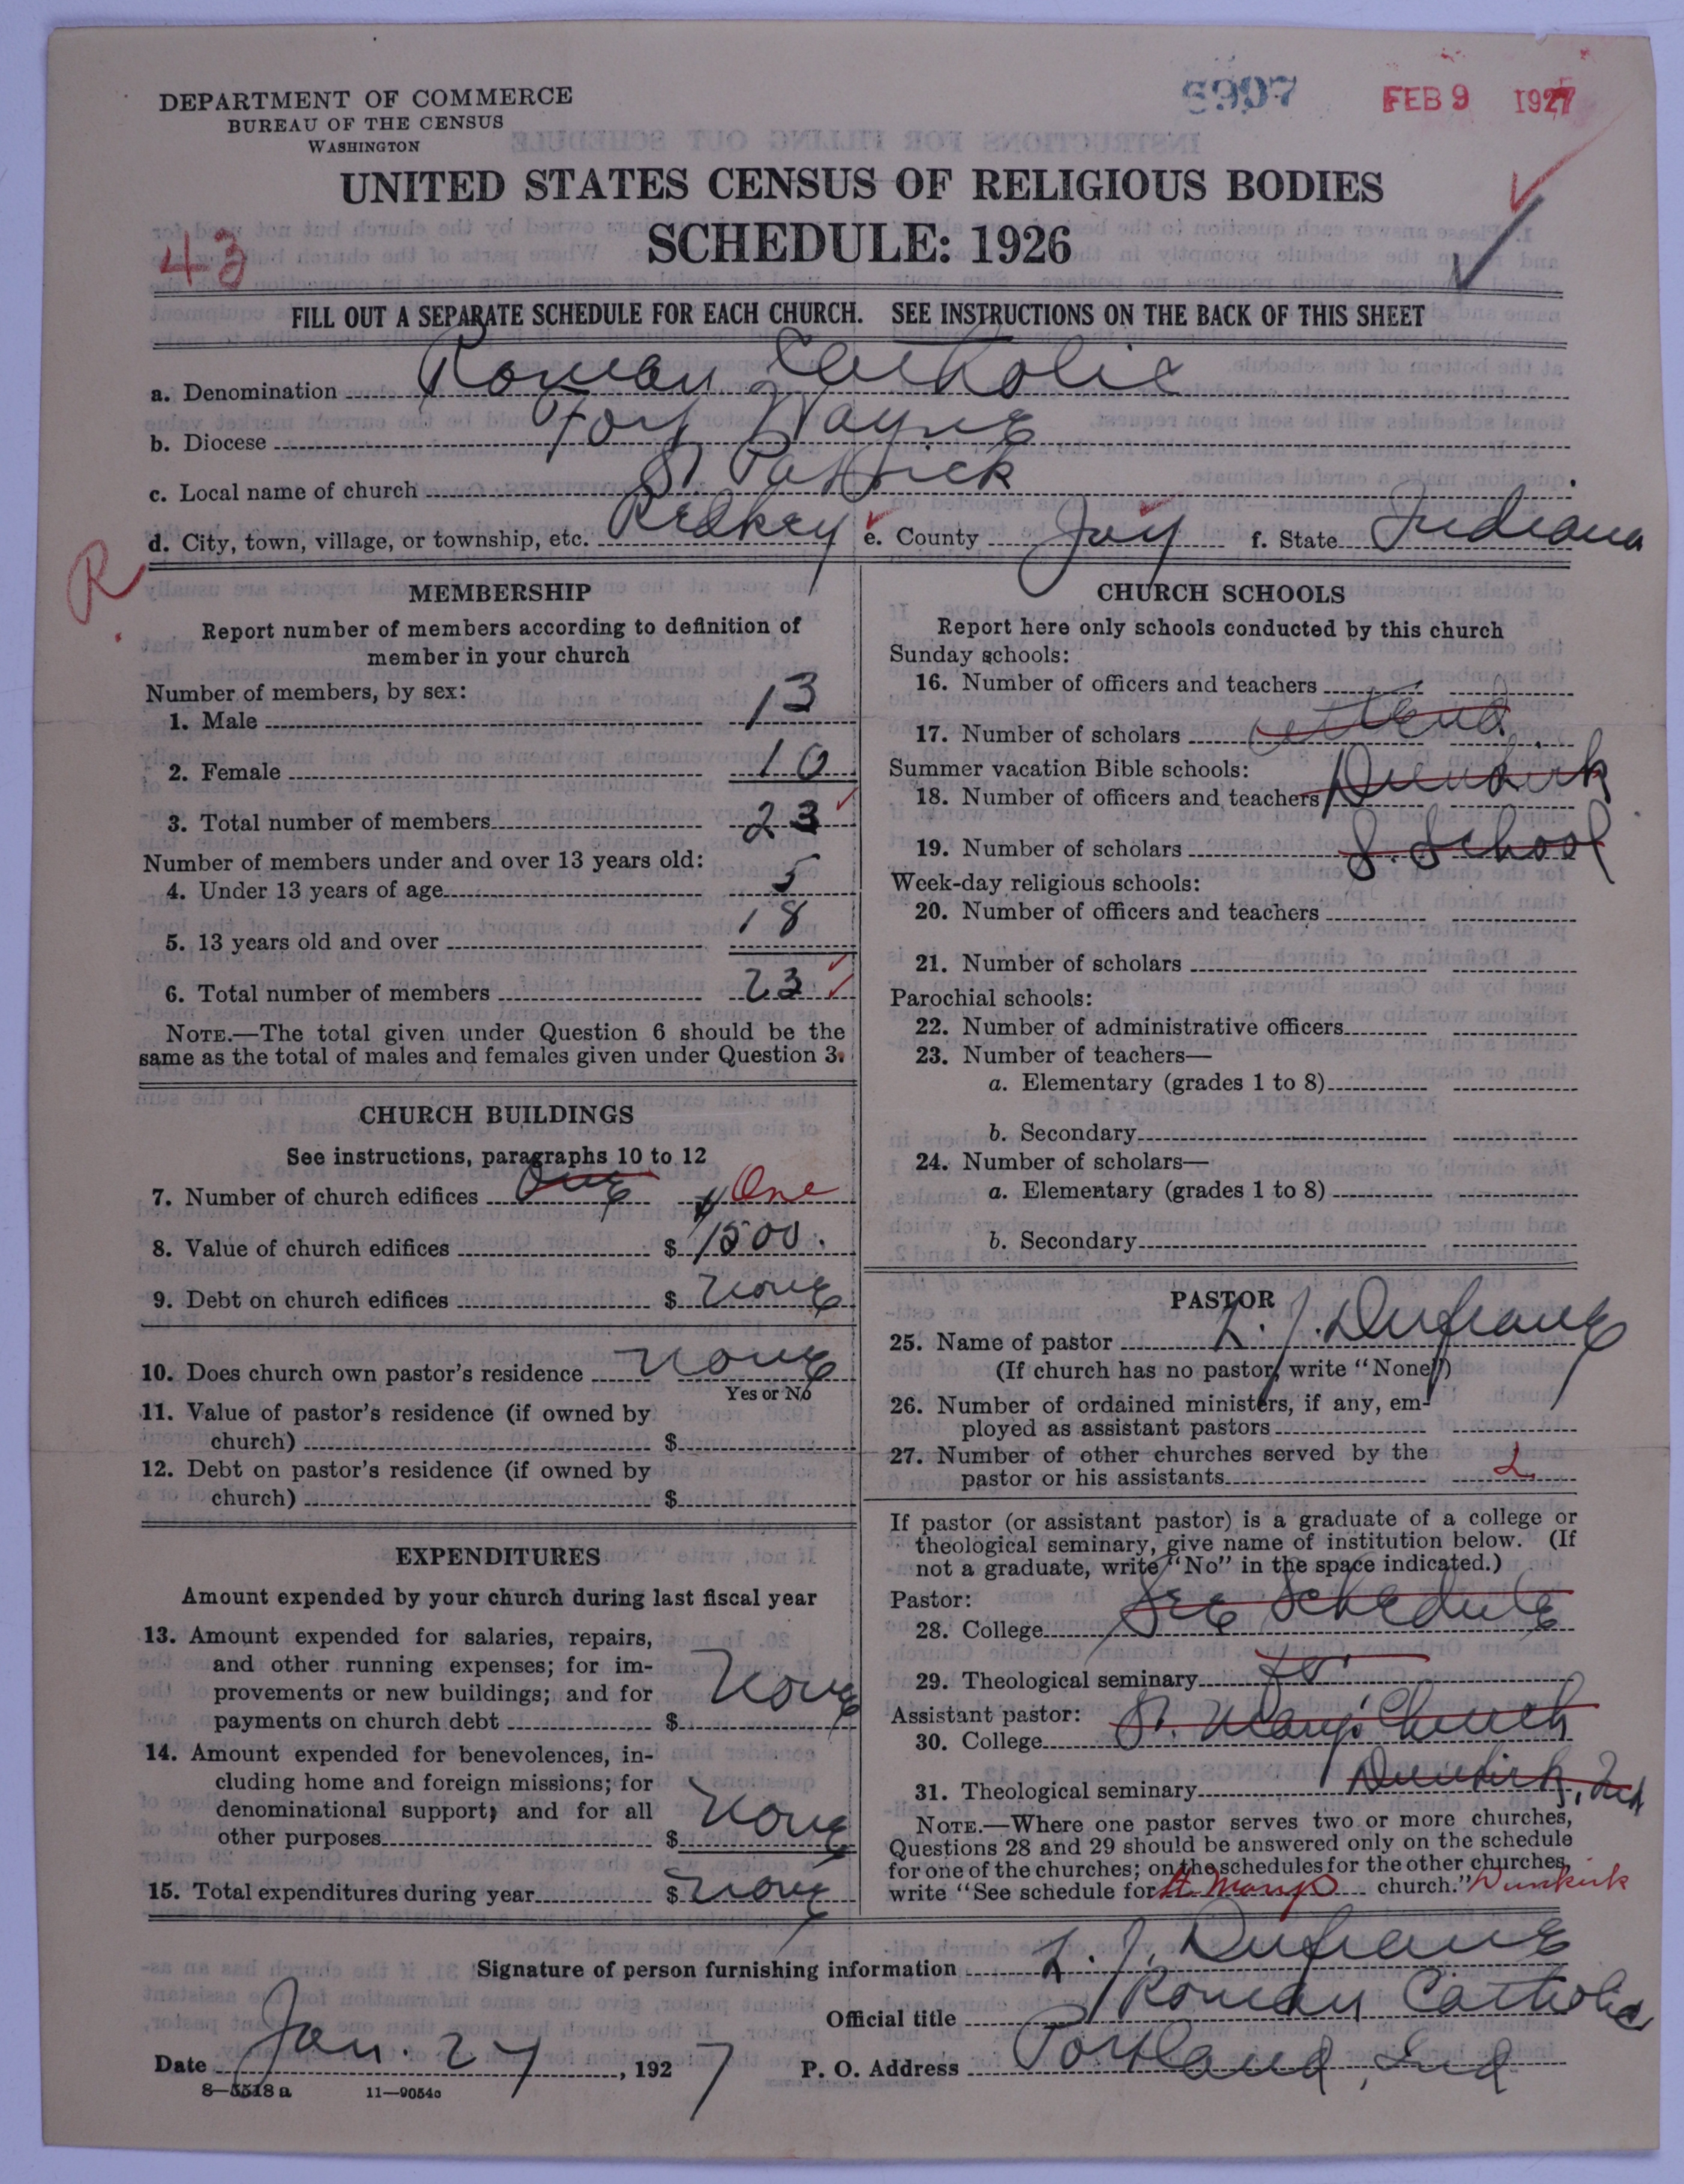 DEPARTMENT OF COMMERCE
BUREAU OF THE CENSUS
WASHINGTON
FEB 9 1927
UNITED STATES CENSUS OF RELIGIOUS BODIES
SCHEDULE: 1926
43
FILL OUT A SEPARATE SCHEDULE FOR EACH CHURCH. SEE INSTRUCTIONS ON THE BACK OF THIS SHEET
a. Denomination Roman Catholic
b. Diocese Fort Wayne
c. Local name of church St Patrick
d. City, town, village, or township, etc. Redkey e. County Jay f. State Indiana
R.
MEMBERSHIP
Report number of members according to definition of
member in your church
Number of members, by sex:
1. Male 13
2. Female 10
3. Total number of members 23
Number of members under and over 13 years old:
4. Under 13 years of age 5
5. 13 years old and over 18
6. Total number of members 23
NOTE.—The total given under Question 6 should be the
same as the total of males and females given under Question 3.
CHURCH BUILDINGS
See instructions, paragraphs 10 to 12
7. Number of church edifices One One
8. Value of church edifices $ 1500.
9. Debt on church edifices $ None
10. Does church own pastor's residence None
Yes or No
11. Value of pastor's residence (if owned by
church) $
12. Debt on pastor's residence (if owned by
church) $
EXPENDITURES
Amount expended by your church during last fiscal year
13. Amount expended for salaries, repairs,
and other running expenses; for im-
provements or new buildings; and for
payments on church debt $ None
14. Amount expended for benevolences, in-
cluding home and foreign missions; for
denominational support; and for all
other purposes $ None
15. Total expenditures during year $ None
CHURCH SCHOOLS
Report here only schools conducted by this church
Sunday schools:
16. Number of officers and teachers
17. Number of scholars attend
Summer vacation Bible schools:
18. Number of officers and teachers Dunkirk
19. Number of scholars S. School
Week-day religious schools:
20. Number of officers and teachers
21. Number of scholars
Parochial schools:
22. Number of administrative officers
23. Number of teachers—
a. Elementary (grades 1 to 8)
b. Secondary
24. Number of scholars—
a. Elementary (grades 1 to 8)
b. Secondary
PASTOR
25. Name of pastor L. J. Dufrane
(If church has no pastor, write "None")
26. Number of ordained ministers, if any, em-
ployed as assistant pastors
27. Number of other churches served by the
pastor or his assistants
If pastor (or assistant pastor) is a graduate of a college or
theological seminary, give name of institution below. (If
not a graduate, write "No" in the space indicated.)
Pastor:
28. College See Schedule
29. Theological seminary for
Assistant pastor:
30. College St. Mary's Church
31. Theological seminary Dunkirk, Ind
NOTE.—Where one pastor serves two or more churches,
Questions 28 and 29 should be answered only on the schedule
for one of the churches; on the schedules for the other churches,
write "See schedule for St. Marys church." Dunkirk
Signature of person furnishing information L. J. Dufrane
Official title Roman Catholic
Date Jan. 27, 1927 P. O. Address Portland, Ind
8—5518 a 11—9054a